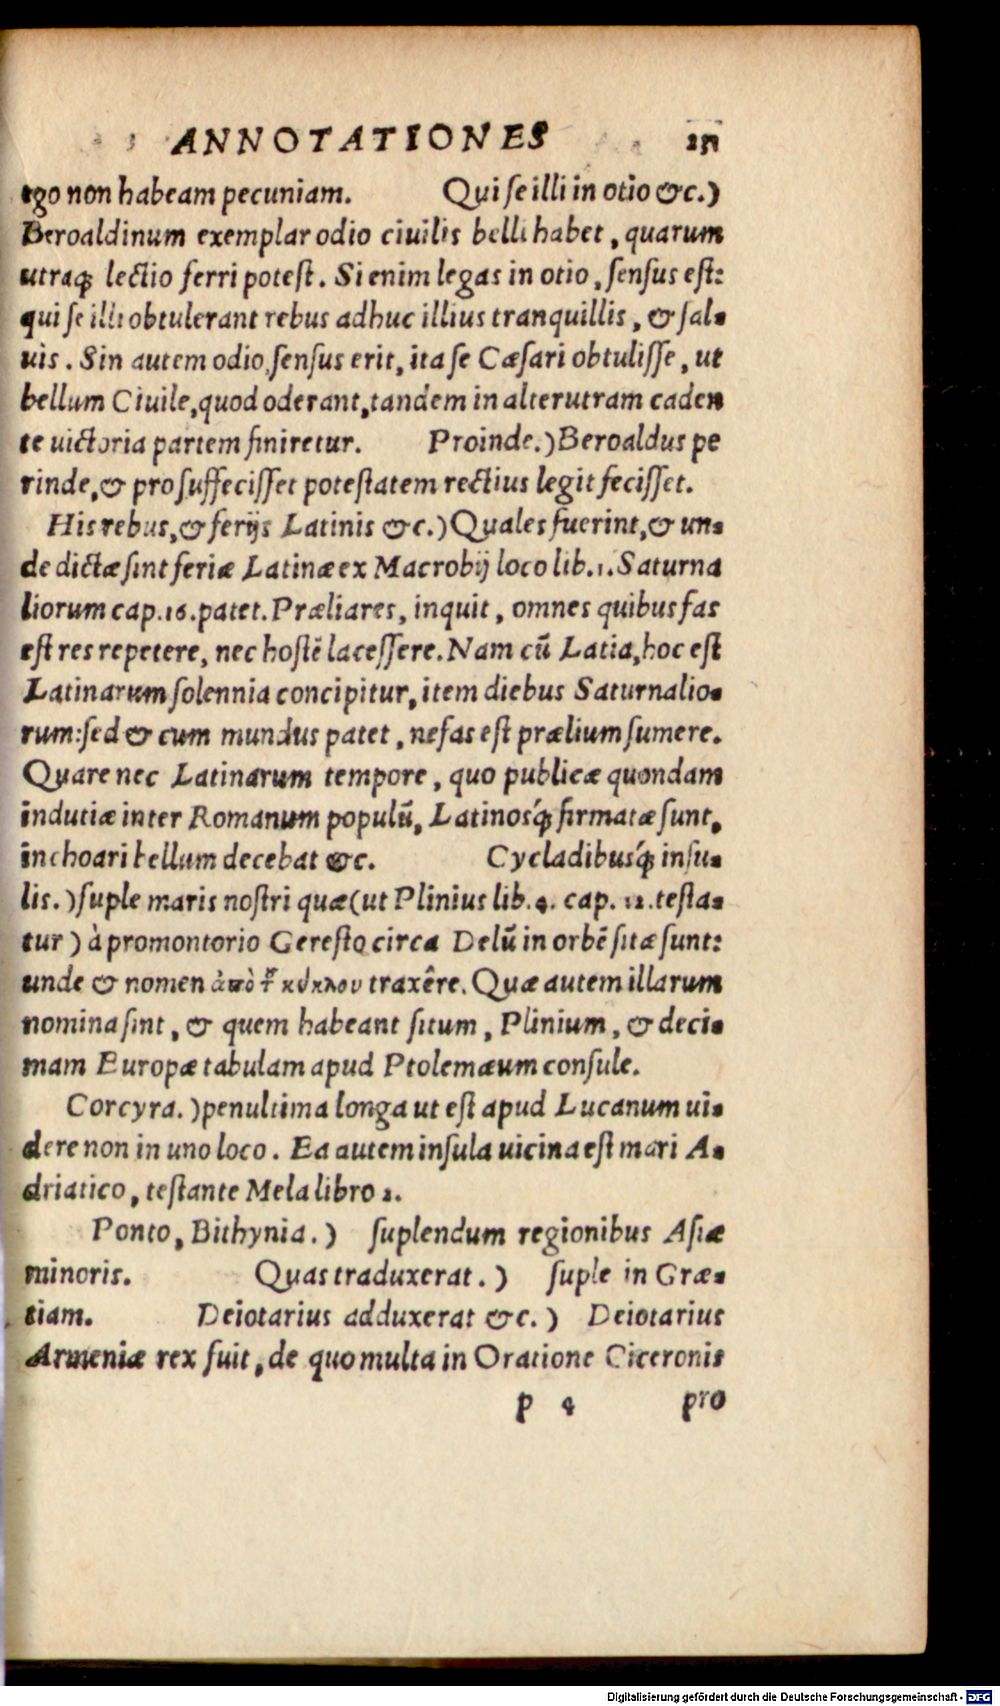 ANNOTATIONES
ego non habeam pecuniam. Qui se illi in otio &c.)
Beroaldinum exemplar odio ciuilis belli habet, quarum
utraq; lectio ferri potest. Si enim legas in otio, sensus est:
qui se illi obtulerant rebus adhuc illius tranquillis, & sal-
uis. Sin autem odio, sensus erit, ita se Cæsari obtulisse, ut
bellum Ciuile, quod oderant, tandem in alterutram caden
te uictoria partem finiretur. Proinde.) Beroaldus pe
rinde, & pro suffecisset potestatem rectius legit fecisset.
His rebus, & ferijs Latinis &c.) Quales fuerint, & un-
de dictæ sint feriæ Latinæ ex Macrobij loco lib. 1. Saturna
liorum cap. 16. patet. Præliares, inquit, omnes quibus fas
est res repetere, nec hostē lacessere. Nam cū Latia, hoc est
Latinarum solennia concipitur, item diebus Saturnalio-
rum: sed & cum mundus patet, nefas est prælium sumere.
Quare nec Latinarum tempore, quo publicæ quondam
indutiæ inter Romanum populū, Latinosq́; firmatæ sunt,
inchoari bellum decebat &c. Cycladibusq́; insu-
lis.) suple maris nostri quæ (ut Plinius lib. 4. cap. 12. testa-
tur) à promontorio Geresto circa Delū in orbē sitæ sunt:
unde & nomen ἀπὸ τ κύκλου traxêre. Quæ autem illarum
nomina sint, & quem habeant situm, Plinium, & deci-
mam Europæ tabulam apud Ptolemæum consule.
Corcyra.) penultima longa ut est apud Lucanum ui-
dere non in uno loco. Ea autem insula uicina est mari A-
driatico, testante Mela libro 2.
Ponto, Bithynia.) suplendum regionibus Asiæ
minoris. Quas traduxerat.) suple in Græ-
tiam. Deiotarius adduxerat &c.) Deiotarius
Armeniæ rex fuit, de quo multa in Oratione Ciceronis
p 4 pro
Digitalisierung gefördert durch die Deutsche Forschungsgemeinschaft - DFG